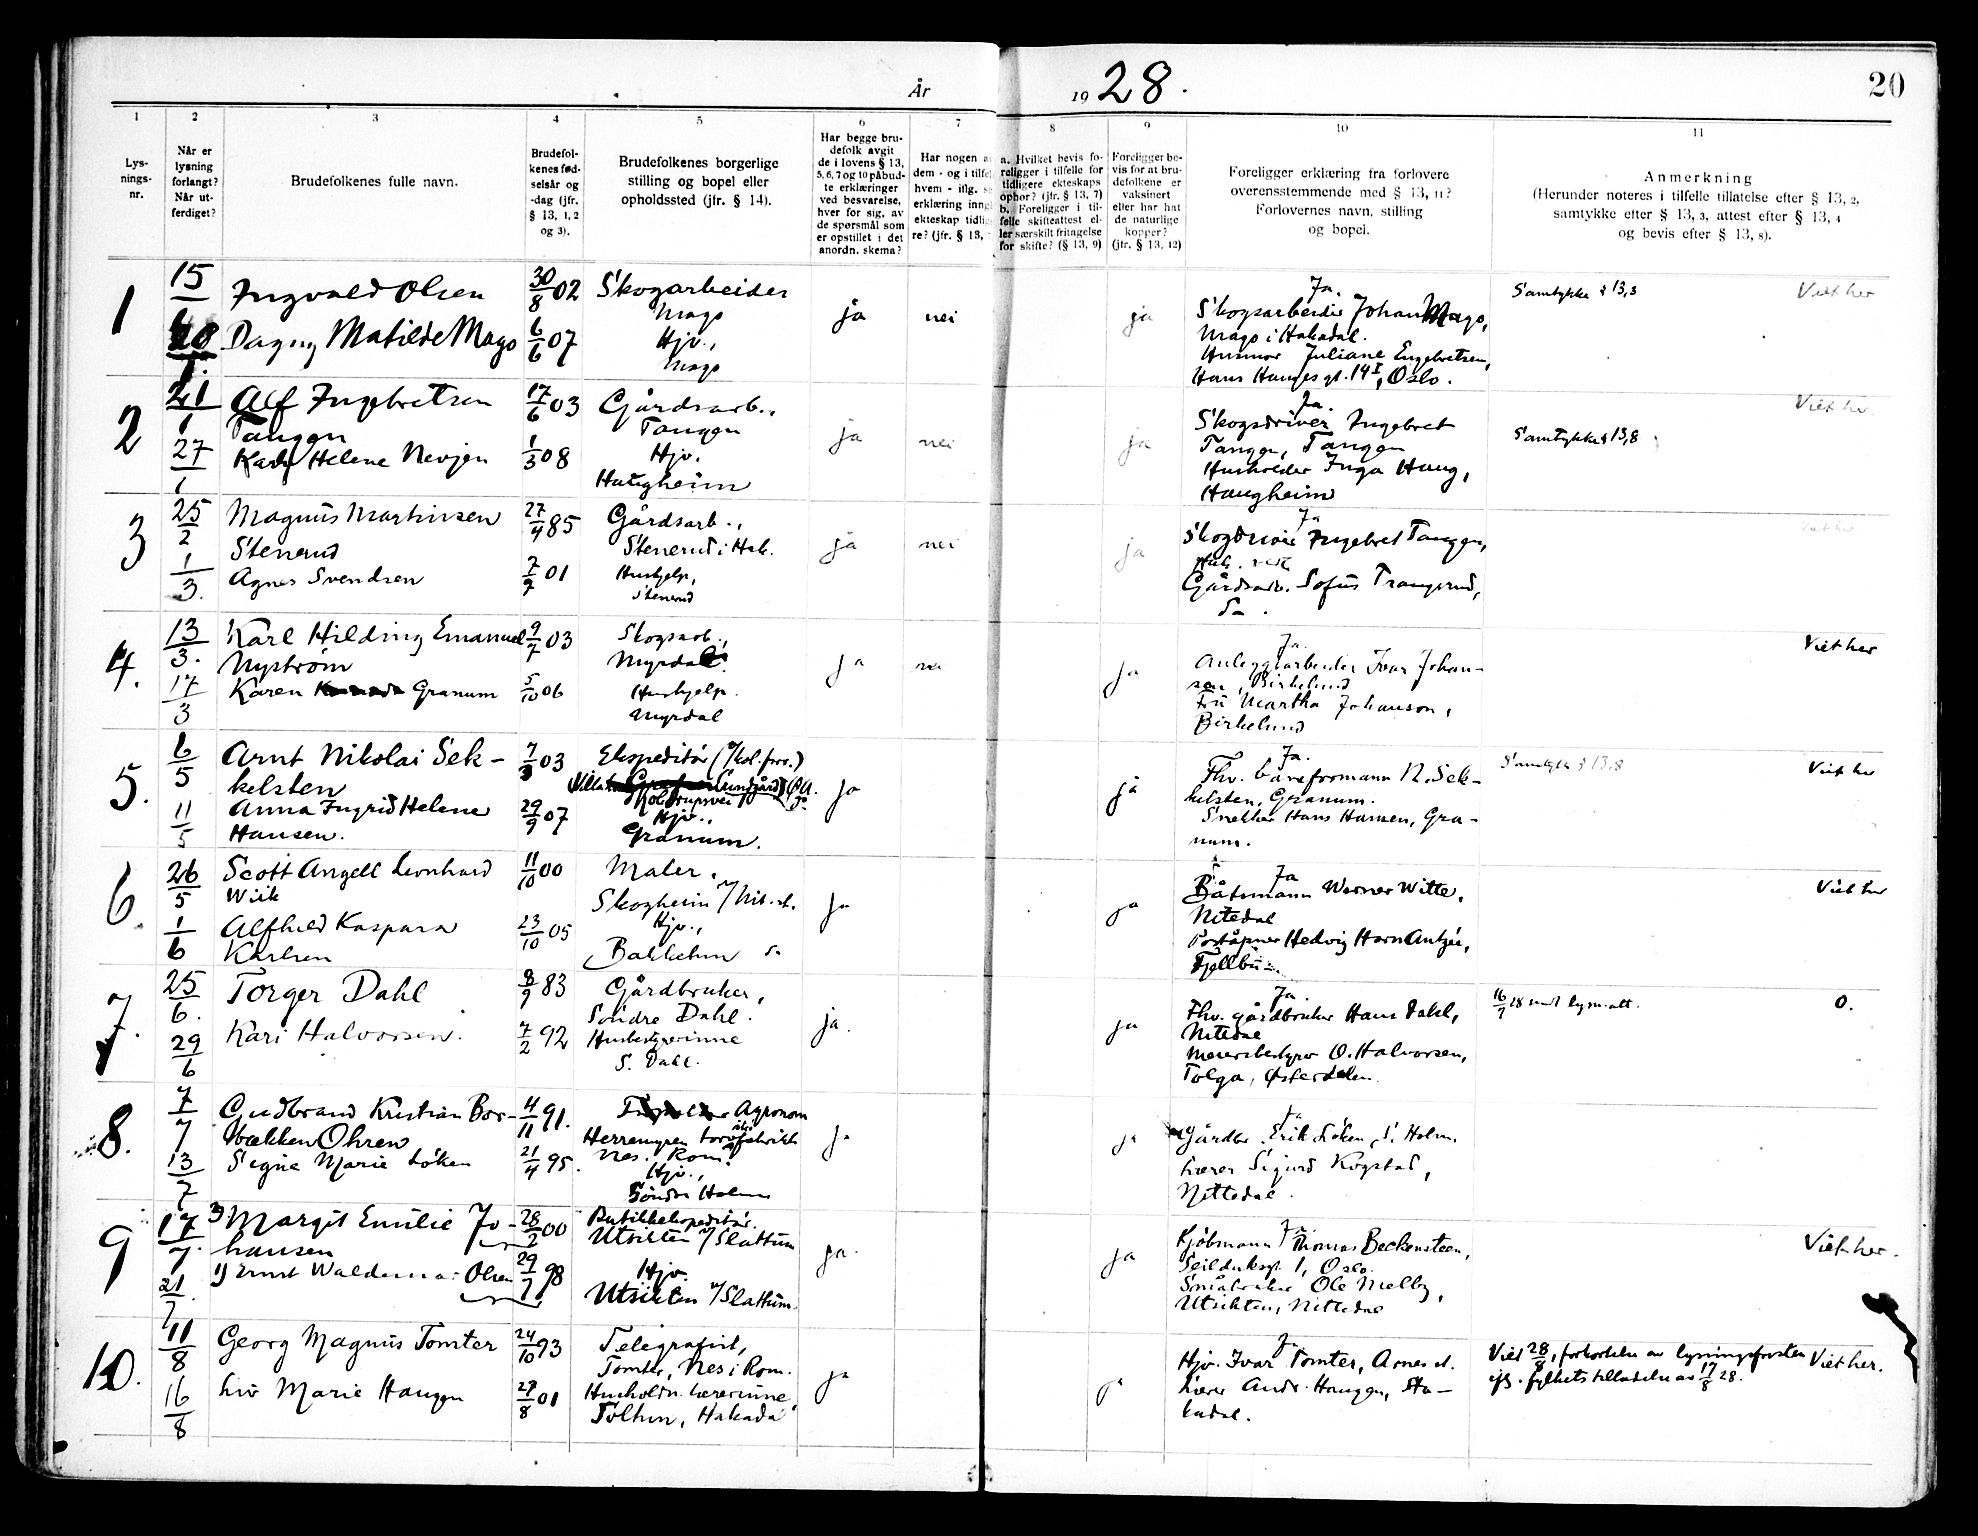 År 1928. 20
1 2 3 4 5 6 7 8 9 10 11
Lys-
nings-
nr.
Når er
lysning
forlangt?
Når ut-
ferdiget?
Brudefolkenes fulle navn.
Brudefol-
kenes fød-
selsår og
-dag (jfr.
§ 13, 1, 2
og 3).
Brudefolkenes borgerlige
stilling og bopel eller
opholdssted (jfr. § 14).
Har begge bru-
defolk avgit
de i lovens § 13,
5, 6, 7 og 10 påbud-
te erklæringer
ved besvarelse,
hver for sig, av
de spørsmål som
er opstillet i det
anordn. skema?
Har nogen a
dem - og i tilfel
hvem - iflg. s
erklæring inng
ekteskap tidlig
re? (jfr. § 13,
a. Hvilket bevis fo-
religger i tilfelle for
tidligere ekteskaps
ophør? (jfr. § 13, 7)
b. Foreligger i til-
felle skifteattest el-
ler særskilt fritagelse
for skifte? (§ 13, 9)
Foreligger be-
vis for at bru-
defolkene er
vaksinert
eller har hat
de naturlige
kopper?
(jfr. § 13, 12)
Foreligger erklæring fra forlovere
overensstemmende med § 13, 11?
Forlovernes navn, stilling
og bopel.
Anmerkning
(Herunder noteres i tilfelle tillatelse efter § 13, 2,
samtykke efter § 13, 3, attest efter § 13, 4
og bevis efter § 13, 8).
1
15/1
Ingvald Olsen
30/8 02
Skogarbeider
Mago
Dagny Matilde Mago
6/6 07
Hjv.,
Mago
ja nei ja
Ja.
Skogsarbeider Johan Mago,
Mago i Hakadal.
Husmor Juliane Engebretsen,
Hans Hauges gt. 14 I, Oslo.
Samtykke § 13,3
Viet her
2
21/1
27/1
Alf Ingebretsen
Tangen
17/6 03
Gårdsarb.,
Tangen
Helene Nevjen
1/3 08
Hjv.
Haugheim
ja nei ja
Ja.
Skogsdriver Ingebret
Tangen, Tangen
Husholder Inga Haug,
Haugheim
Samtykke § 13,8
Viet her
3
25/2
1/3.
Magnus Martinsen
Stenerud
27/4 85
Gårdsarb.,
Stenerud i Hak.
Agnes Svendsen
7/9 01
Hushjelp,
Stenerud
ja nei ja
Ja
Skogdriver Ingebret Tangen,
Gårdsarb. Sofus Trangerud,
Viet her
4.
13/3.
17/3
Karl Hilding Emanuel
Nystrøm
9/7 03
Skogsarb.,
Myrdal.
Karen Granum
5/10 06
Hushjelp.
Myrdal
ja nei ja
Ja.
Anleggsarbeider Ivar Johan-
sen, Birkelund
Fru Martha Johanson,
Birkelund
Viet her
5.
6/5
11/5
Arnt Nikolai Sek-
kelsten
7/3 03
Ekspeditør
Anna Ingrid Helene
Hansen.
29/9 07
Hjv.,
Granum.
ja ja
Ja.
Fhv. baneformann N. Sek-
kelsten, Granum.
Snekker Hans Hansen, Gra-
num.
Samtykke § 13,8
Viet her
6.
26/5
1/6
Scott Angell Leonhard
Wiik
11/10 00
Maler,
Skogheim v/Nit. st.
Alfhild Kaspara
Karlsen
23/10 05
Hjv.,
Bakkehun
ja ja
Ja
Båtsmann Werner Witte,
Nitedal
Poståpner Hedvig Horn Antzée,
Fjellbu
Viet her
7.
25/6.
29/6
Torger Dahl
8/9 83
Gårdbruker,
Søndre Dahl.
Kari Halvorsen.
7/2 92
Husbestyrerinne
S. Dahl.
ja. ja
Ja.
Fhv. gårdbruker Hans Dahl,
Nitedal
Meieribestyrer O. Halvorsen,
Tolga, Østerdalen.
16/7 28 lysn.att.
0.
8.
7/7
13/7
Gudbrand Kristian Bor-
bækken Ohren
4/11 91.
Agronom
Herremyren torvfabrikk
Nes. Rom.
Signe Marie Løken
21/4 95.
Hjv.,
Søndre Holum
ja ja
Ja
Gårdbr. Erik Løken, S. Holm.
Lærer Sigurd Kogstad,
Nittedal.
9
17/7.
21/7.
3) Margit Emilie Jo-
hansen
28/2 00
Butikkekspeditør.
Utsikten v/Slattum
1) Ernst Waldemar Olsen
29/7 98
Hjv.
Utsikten v/Slattum.
ja. ja
Ja.
Kjøbmann Thomas Beckensteen,
Seilduksgt. 1, Oslo.
Småbruker Ole Melby,
Utsikten, Nittedal
Viet her.
10.
11/8
16/8
Georg Magnus Tomter
24/10 93
Telegrafist,
Tomter, Nes i Rom.
Liv Marie Haugen
27/8 01
Husholdn. lærerinne,
Tolhun, Hakadal
ja ja
Ja
Hjv. Ivar Tomter, Arnes st.
Lærer Andr. Haugen, Ha-
kadal.
Viet 28/8, forkortelse av lysningsfristen
ifl. fylkets tilladelse av 17/8 28.
Viet her.